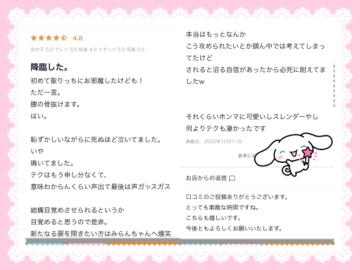 4.8
女の子 5.0 プレイ 5.0 料金 4.0 スタッフ 5.0 写真 5.0
降臨した。
初めて聖りっちにお邪魔したけども！
ただ一言。
腰の骨抜けます。
はい。
恥ずかしいながらに死ぬほど泣いてました。
いや
鳴いてました。
テクはもう申し分なくて、
意味わからんくらい声出て最後は声ガッスガス
結構目覚めさせられるというか
目覚めると思うので是非。
新たなる扉を開きたい方はみらんちゃんへ爆笑
本当はもっとなんか
こう攻められたいとか頭ん中では考えてしまっ
てたけど
されると沼る自信があったから必死に耐えてま
したw
それくらいホンマに可愛いしスレンダーやし
何よりテクも凄かったです
掲載日：2022年10月11日
お店からの返信
口コミのご投稿ありがとうございます。
とっても素敵な時間ですね。
こちらも嬉しいです。
今後ともよろしくお願いいたします。